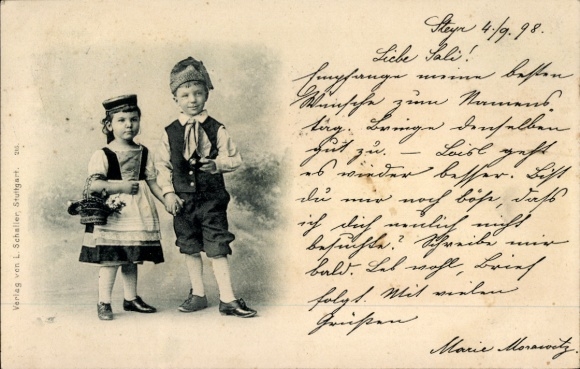 Steyr 4./9. 98.
Liebe Sali!
Empfange meine besten
Wünsche zum Namens-
tag. Bringe denselben
gut zu. – Loisl geht
es wieder besser. Bist
du mir noch böse, daß
ich dich neulich nicht
besuchte? Schreibe mir
bald. Leb wohl, Brief
folgt. Mit vielen
Grüßen
Marie Morawitz.
Verlag von L. Schaller, Stuttgart.